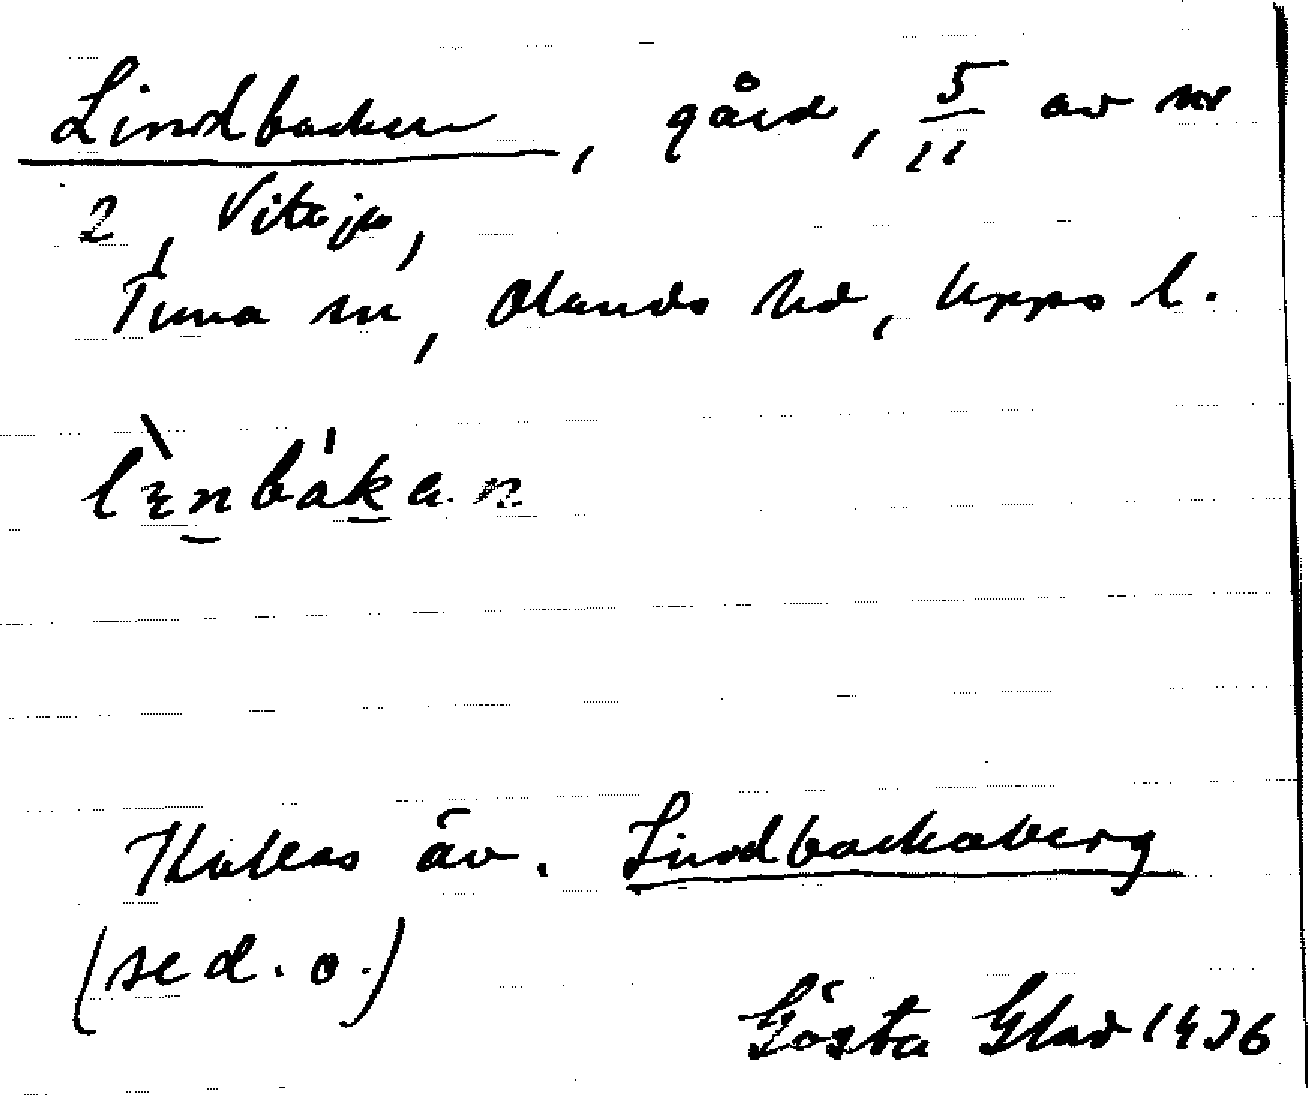 Lindbacken, gård, 5/11 av nr
2, Viteja,
Tuna sn, Olands hd, Upps l.
lìnbákan
Kallas äv. Lindbackaberg
(se d. o.)
Gösta Glad 1936